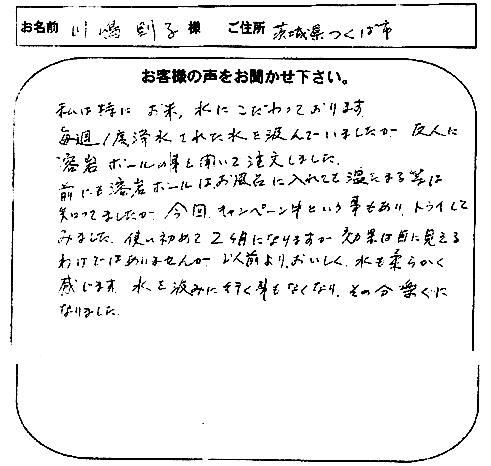 お名前 川嶋 則子 様 ご住所 茨城県つくば市
お客様の声をお聞かせ下さい。
私は特に お米,水に こだわっております
毎週1度浄水された水を汲んでいましたが 友人に
溶岩ボールの事を聞いて注文しました.
前にも溶岩ボールはお風呂に入れても温たまる等は
知ってましたが 今回、キャンペーン中という事もあり、トライして
みました. 使い初めて 2ヶ月になりますが 効果は目に見える
わけではありませんが 以前より、おいしく、水も柔らかく
感じます 水を汲みに行く事もなくなり、その分楽に
なりました.